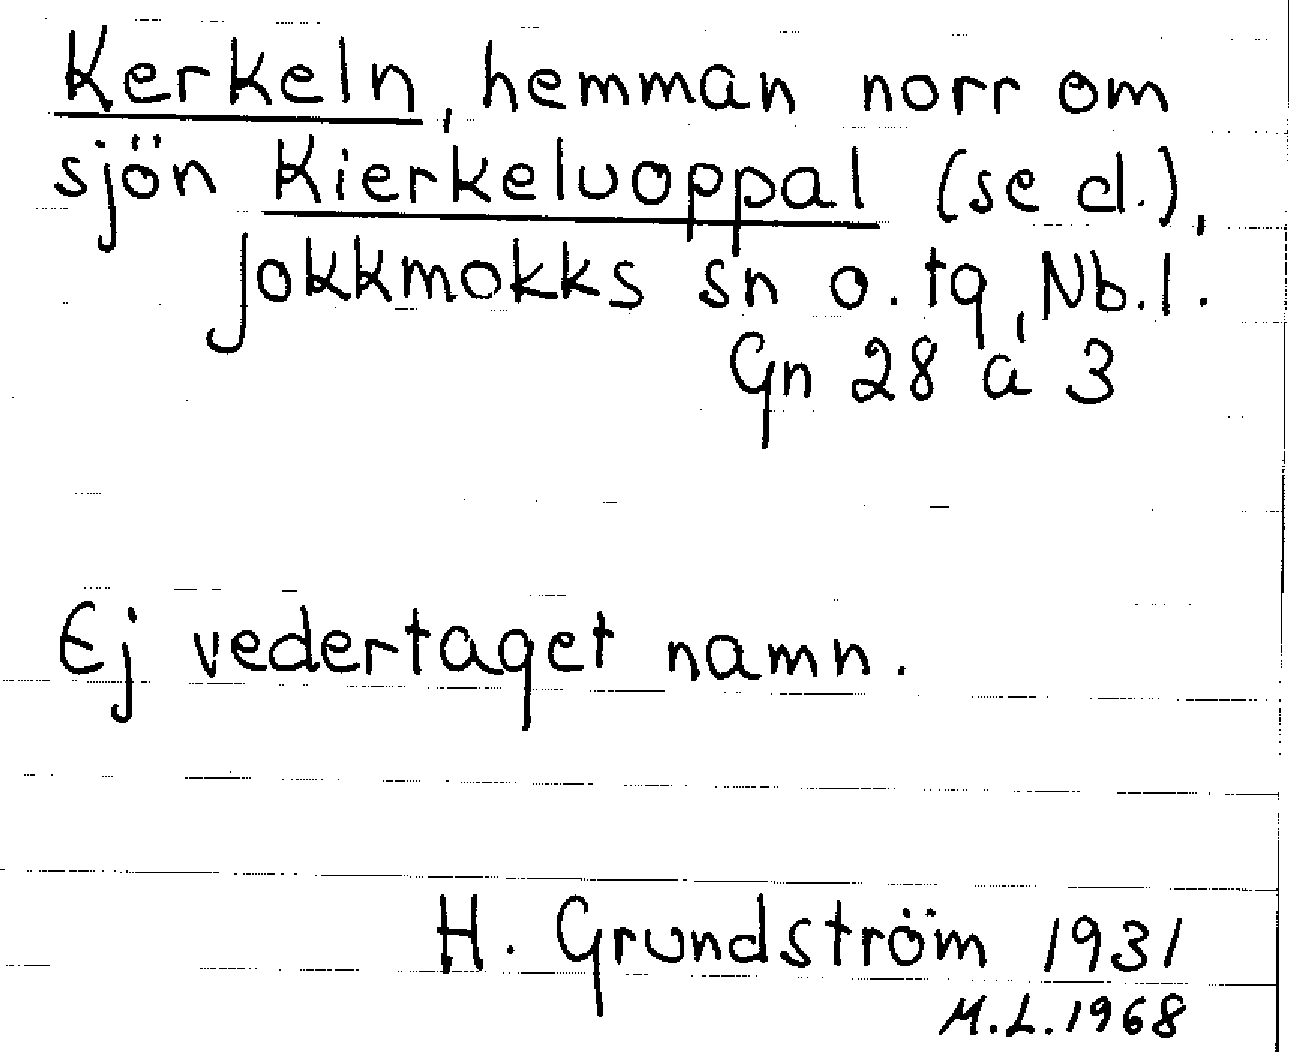 Kerkeln, hemman norr om
sjön Kierkeluoppal (se d.),
Jokkmokks sn o. tg, Nb.l.
Gn 28 a 3
Ej vedertaget namn.
H. Grundström 1931
M.L.1968